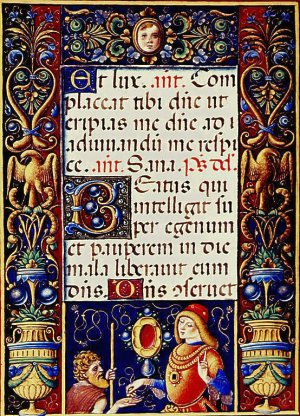 Et lux. ant. Com
placeat tibi dñe ut
eripias me dñe ad i
aduuandũ me respi
ce. ant. Sana. Ps. del.
Beatus qui
intelligit su
per egenum
et pauperem in die
mala liberauit eum
dñs. Dñs ɔseruet